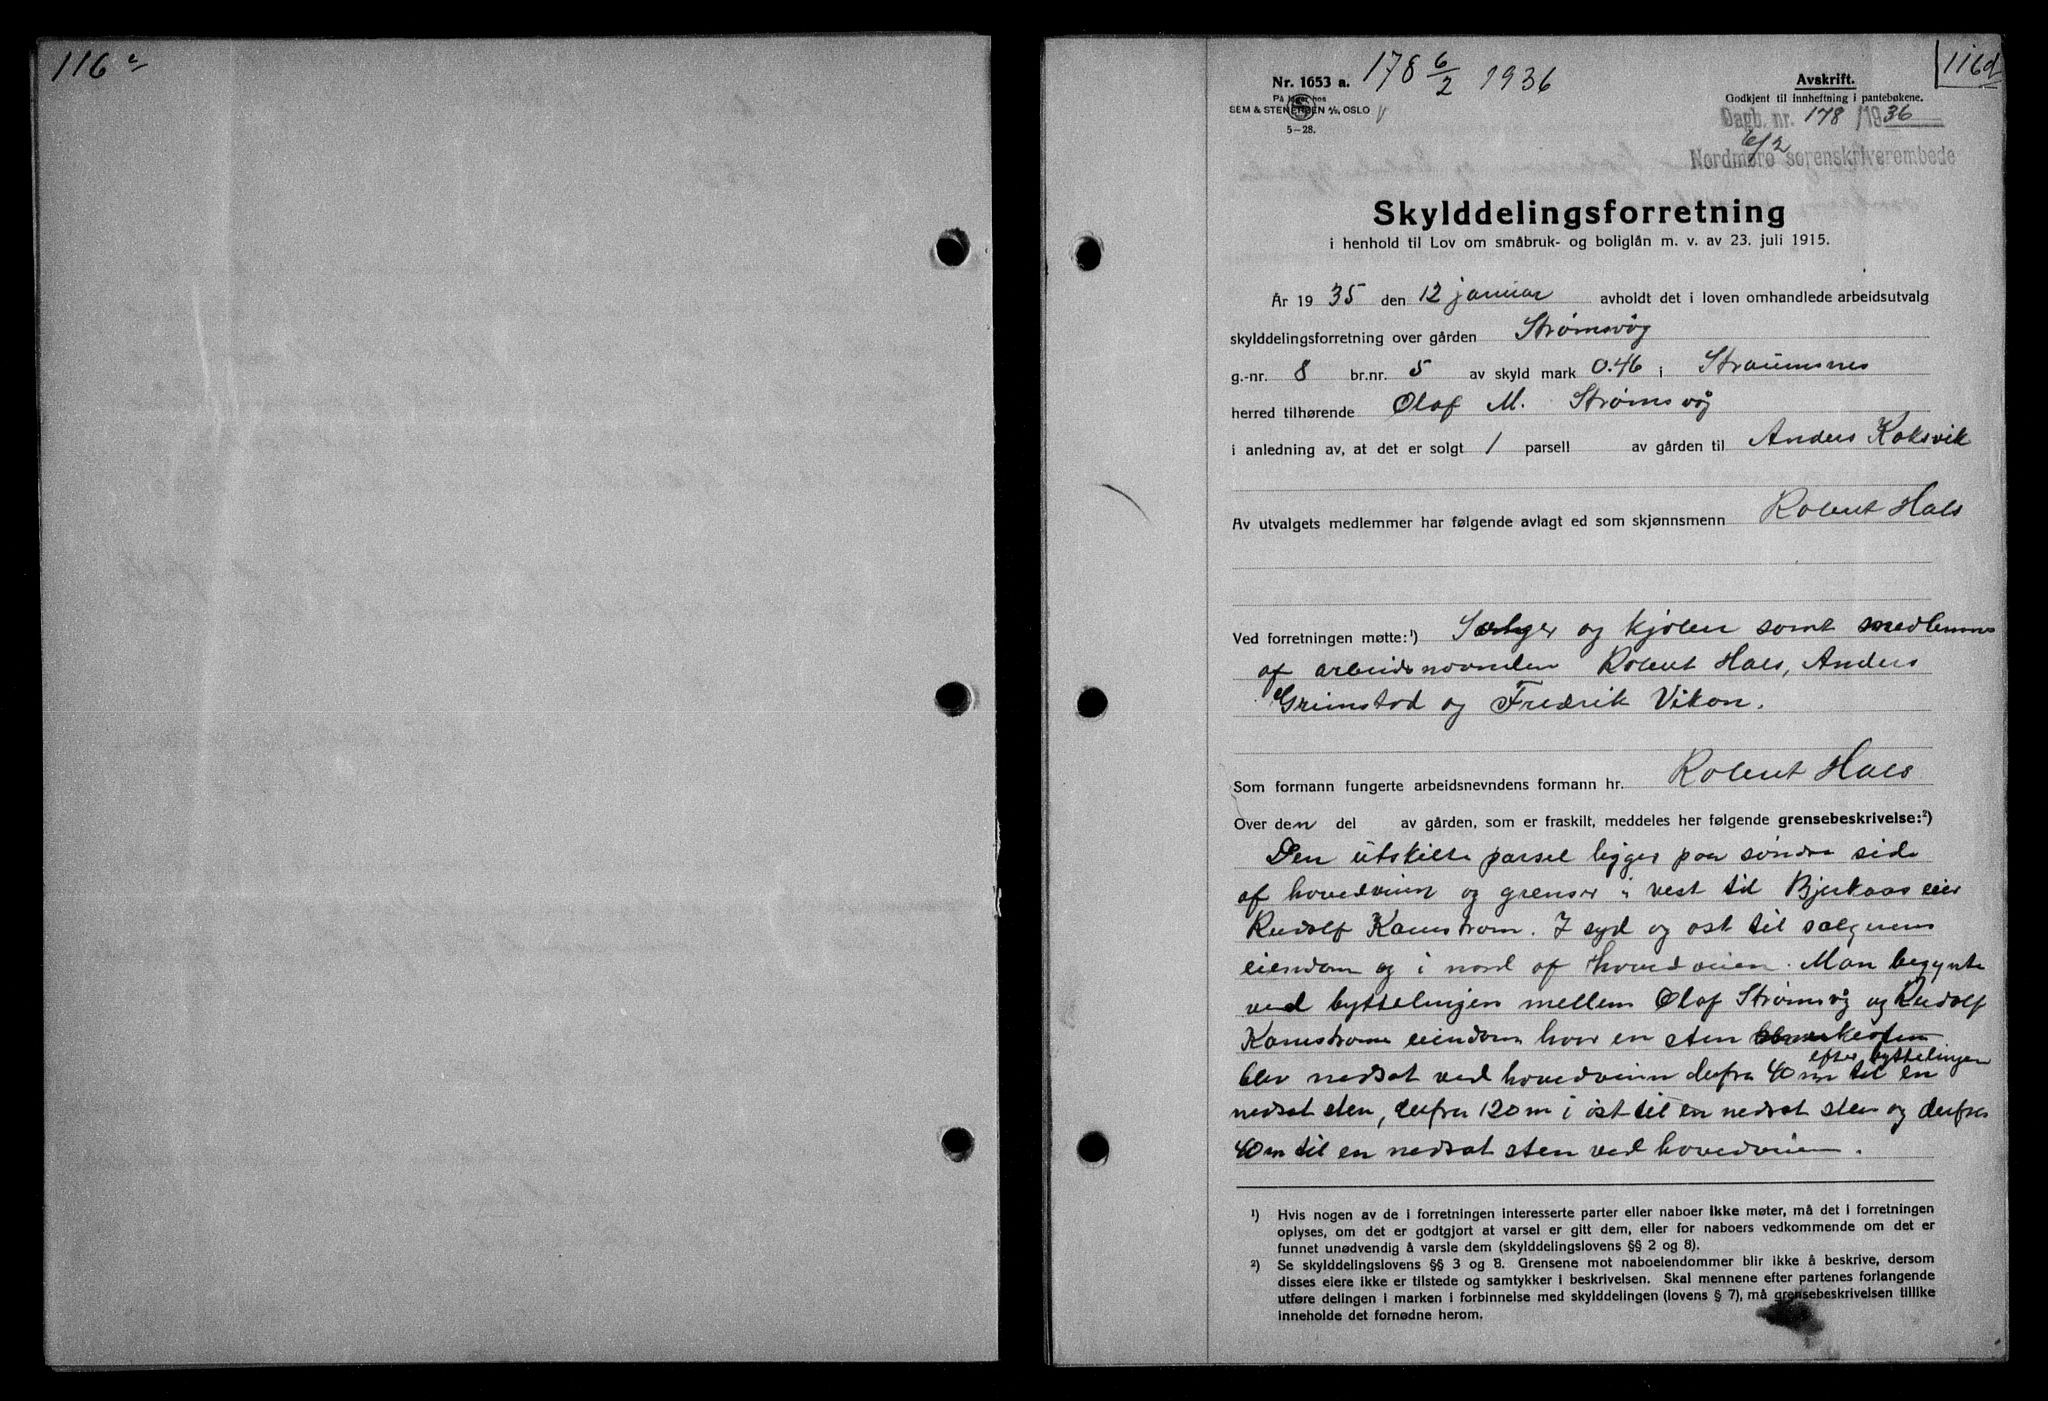 116 c
178 6/2 1936
116d
Nr. 1653 a.
På lager hos
SEM & STENERSEN A/S, OSLO
5-28.
Avskrift.
Godkjent til innheftning i pantebøkene.
Dagb. nr. 178 /1936
6/2
Nordmøre sorenskriverembede
Skylddelingsforretning
i henhold til Lov om småbruk- og boliglån m. v. av 23. juli 1915.
År 1935 den 12 januar avholdt det i loven omhandlede arbeidsutvalg
skylddelingsforretning over gården Strømsvåg
g.-nr. 8 br.nr. 5 av skyld mark 0.46 i Straumsnes
herred tilhørende Olaf M. Strømsvåg
i anledning av, at det er solgt 1 parsell av gården til Anders Koksvik
Av utvalgets medlemmer har følgende avlagt ed som skjønnsmenn Robert Hals
Ved forretningen møtte:¹) Sælger og kjøber samt medlemmer
af arbeidsnevnden Robert Hals, Anders
Grimstad og Fredrik Vikan.
Som formann fungerte arbeidsnevndens formann hr. Robert Hals
Over den del av gården, som er fraskilt, meddeles her følgende grensebeskrivelse:²)
Den utskilte parsel ligger paa søndre side
af hovedveien og grenser i vest til Bjerkaas eier
Rudolf Kamstrøm. I syd og øst til sælgerens
eiendom og i nord af hovedveien. Man begynte
ved byttelinjen mellem Olaf Strømsvåg og Rudolf
Kamstrøms eiendom hvor en sten
efter byttelinjen
blev nedsat ved hovedveien derfra 40 m til en
nedsat sten, derfra 120 m i øst til en nedsat sten og derfra
40 m til en nedsat sten ved hovedveien.
¹) Hvis nogen av de i forretningen interesserte parter eller naboer ikke møter, må det i forretningen
oplyses, om det er godtgjort at varsel er gitt dem, eller for naboers vedkommende om det er
funnet unødvendig å varsle dem (skylddelingslovens §§ 2 og 8).
²) Se skylddelingslovens §§ 3 og 8. Grensene mot naboeiendommer blir ikke å beskrive, dersom
disses eiere ikke er tilstede og samtykker i beskrivelsen. Skal mennene efter partenes forlangende
utføre delingen i marken i forbinnelse med skylddelingen (lovens § 7), må grensebeskrivelsen tillike
inneholde det fornødne herom.